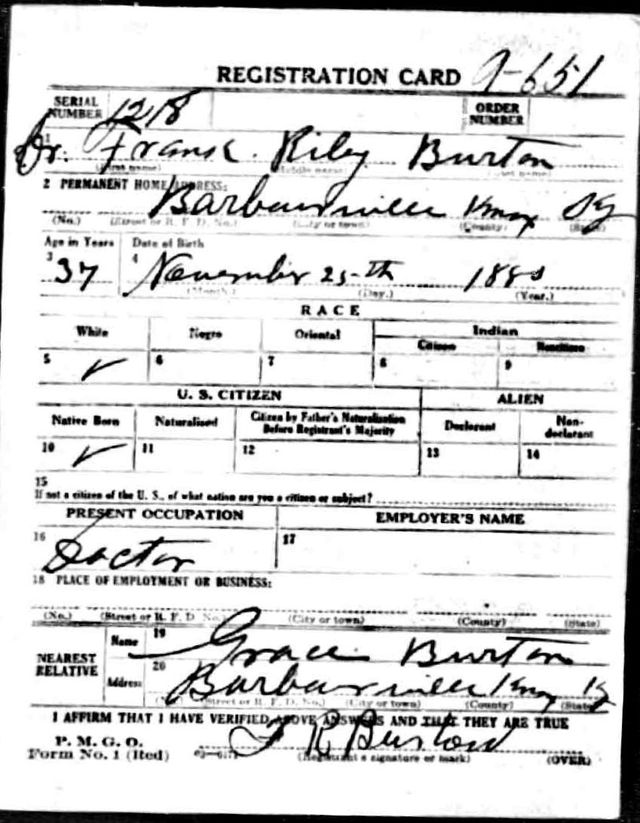 REGISTRATION CARD A-651
SERIAL NUMBER 1218 ORDER NUMBER
1 Dr. Frank Riley Burton
(First name) (Middle name) (Last name)
2 PERMANENT HOME ADDRESS:
Barbourville Knox Ky
(No.) (Street or R. F. D. No.) (City or town) (County) (State)
Age in Years Date of Birth
3 37 4 November 25-th 1880
(Month.) (Day.) (Year.)
RACE
White Negro Oriental Indian
Citizen Noncitizen
5 ✓ 6 7 8 9
U. S. CITIZEN ALIEN
Native Born Naturalized Citizen by Father's Naturalization Before Registrant's Majority Declarant Non-declarant
10 ✓ 11 12 13 14
15
If not a citizen of the U. S., of what nation are you a citizen or subject?
PRESENT OCCUPATION EMPLOYER'S NAME
16 Doctor 17
18 PLACE OF EMPLOYMENT OR BUSINESS:
(No.) (Street or R. F. D. No.) (City or town) (County) (State)
NEAREST RELATIVE Name 19 Grace Burton
Address 20 Barbourville Knox Ky
(No.) (Street or R. F. D. No.) (City or town) (County) (State)
I AFFIRM THAT I HAVE VERIFIED ABOVE ANSWERS AND THAT THEY ARE TRUE
P. M. G. O.
Form No. 1 (Red) F R Burton
(Registrant's signature or mark) (OVER)